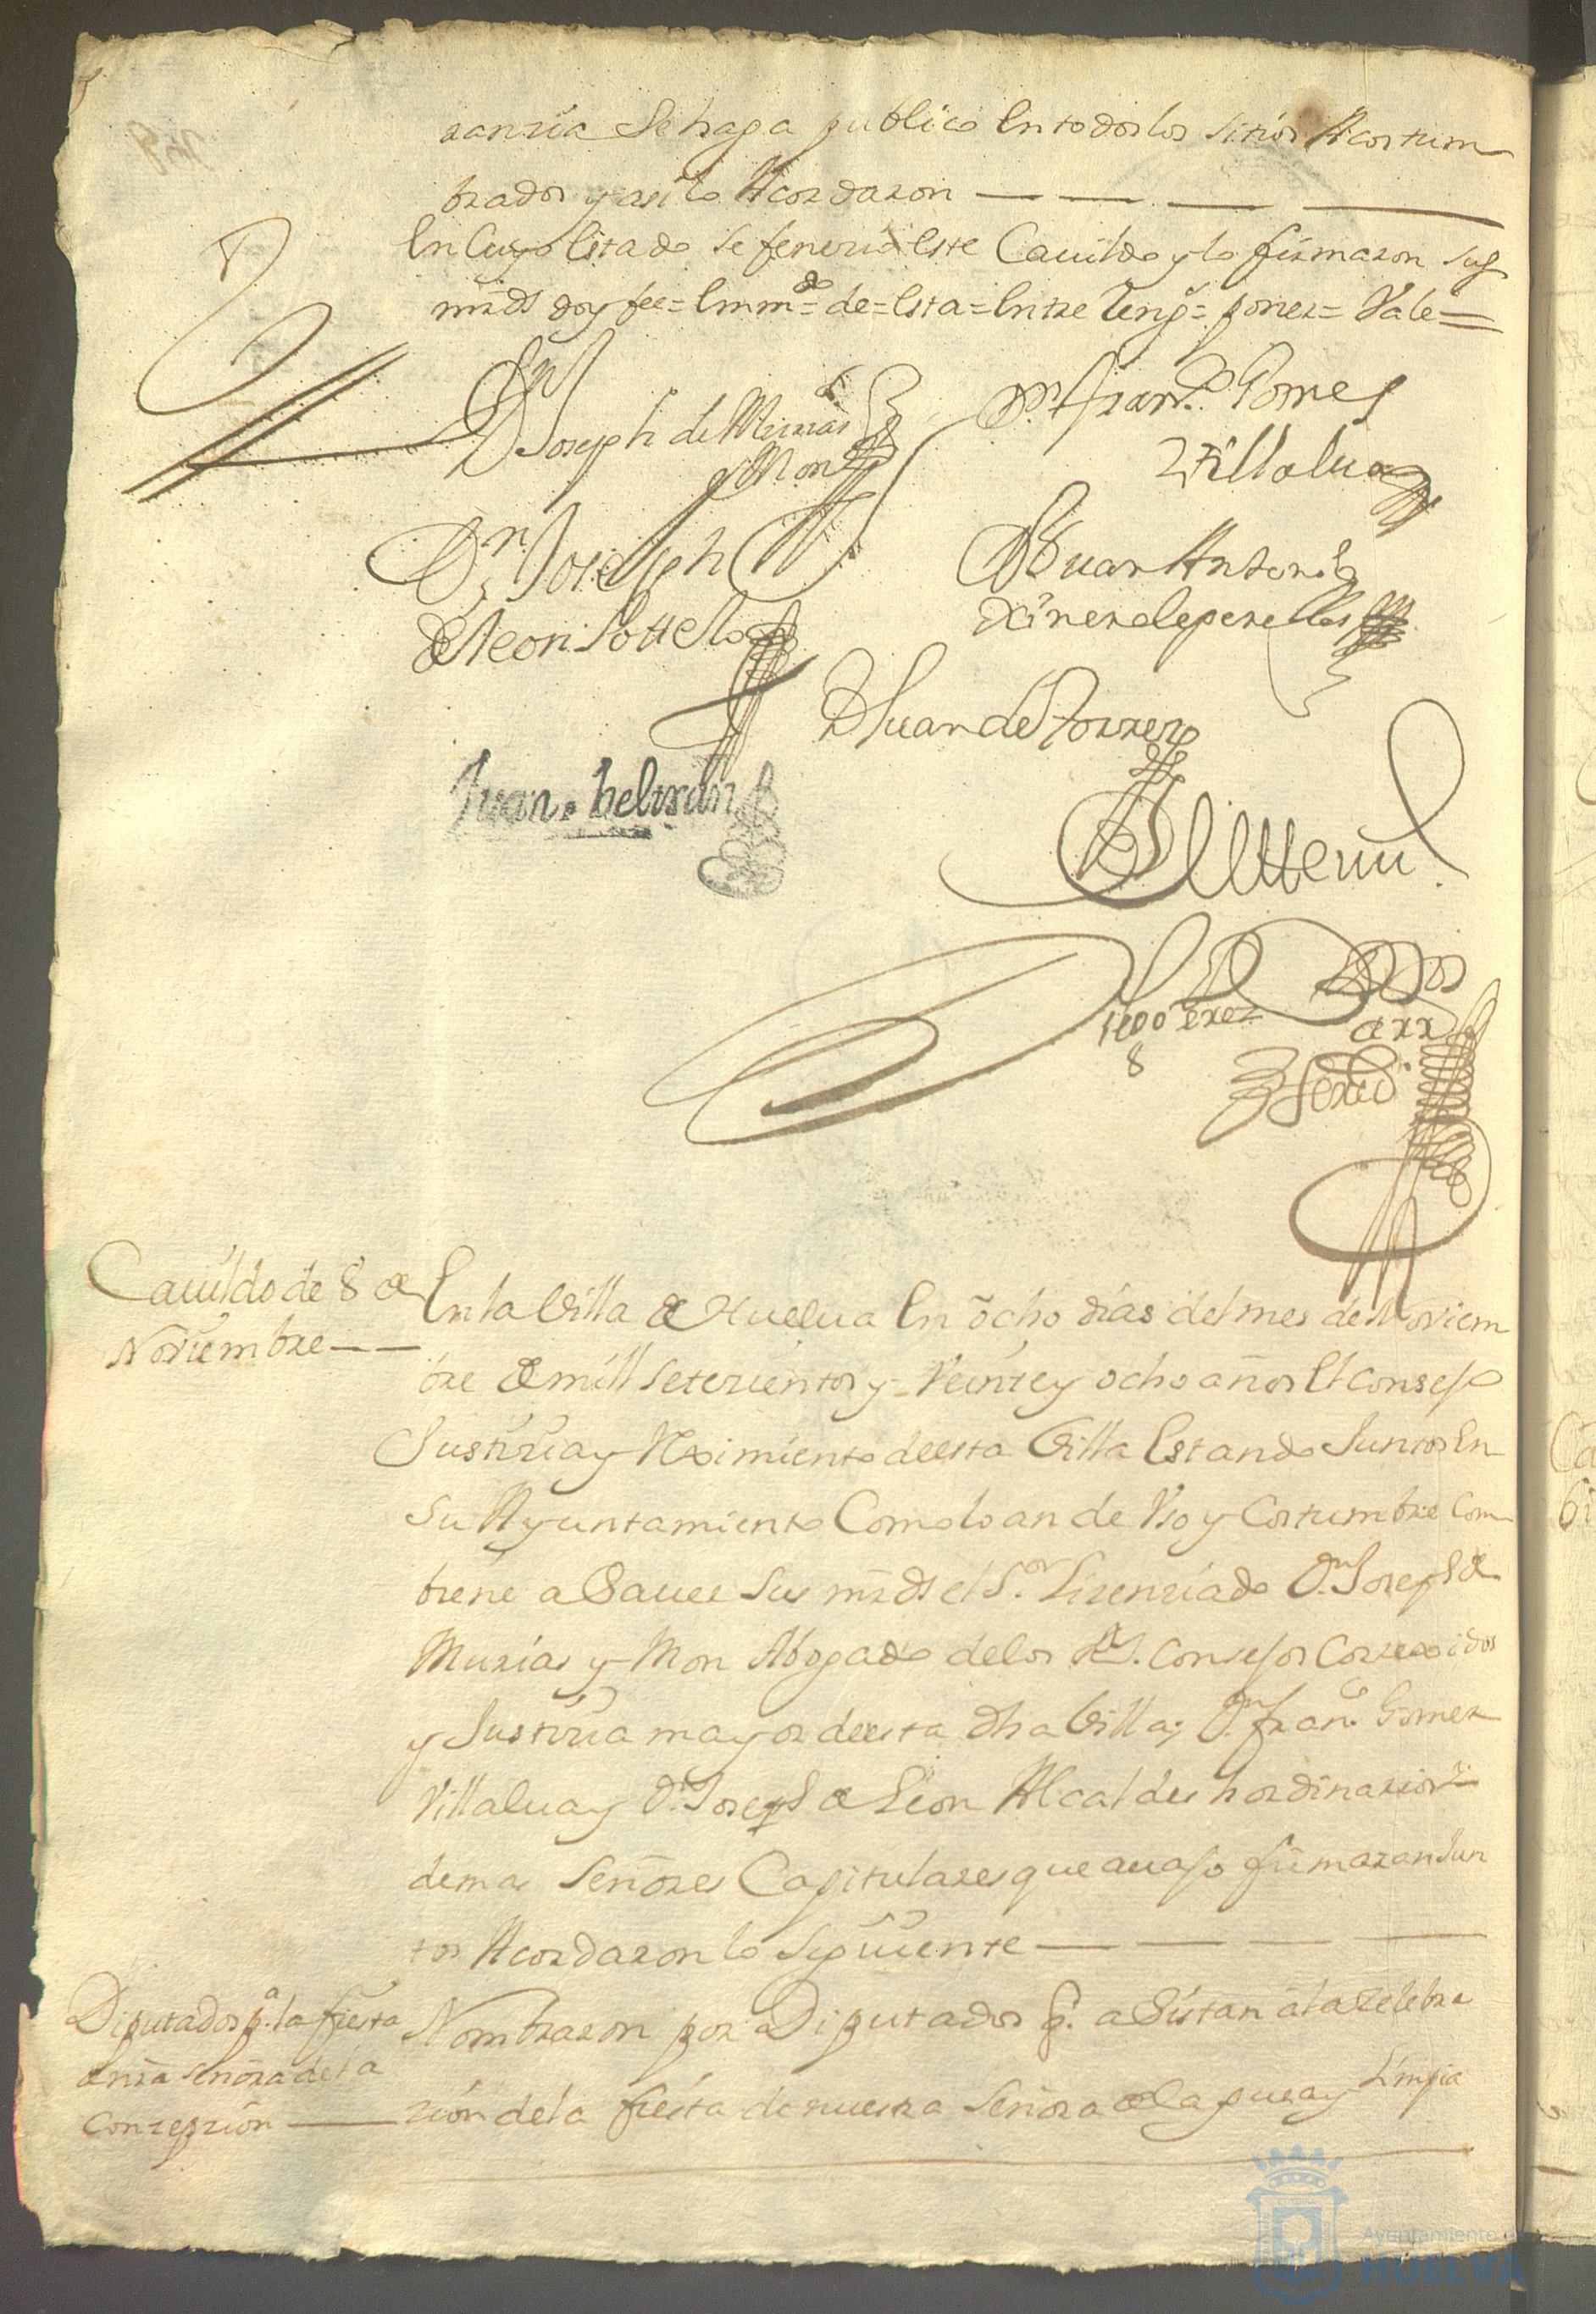 ranzia Sehaga publico En todos los sitios Acostum
brados y asi lo Acordaron
En Cuyo Estado se fenecio Este Cauildo y lo firmaron sus
mrds doy fee = Emmdo = de = Esta = Entre Reng.s = poner = Vale =
Dn Joseph de Murias
y Mon
Dn Fran.co Gomes
Villalua
Dn Joseph
de leon Sottelo
D Juan Antonio
D Juan de Torres
Juan beltran
Diego Perez
8
Cauildo de 8 de
Noviembre
En la Villa de Huelua En ocho dias del mes de Noviem
bre de mill setecientos y Veinte y ocho años El Consejo
Justicia y Reximiento de esta Villa Estando Juntos En
Su Ayuntamiento Como lo an de Vso y Costumbre Com
biene a Sauer Sus mrds el S.or Lizenciado D.n Joseph de
Murias y Mon Abogado de los R.s Consejos Correxidor
y Justicia mayor de esta dha Villa, D.n Fran.co Gomez
Villalua y D.n Joseph de Leon Alcaldes hordinarios
demas Señores Capitulares que auajo firmaran Jun
tos Acordaron lo Siguiente
Diputados p.a la fiesta
de nra Señora de la
Conzepzion
Nombraron por Diputados p.a aSistan a la zelebra
zion de la fiesta de nuestra Señora de la pura y Limpia
Ayuntamiento de
HUELVA